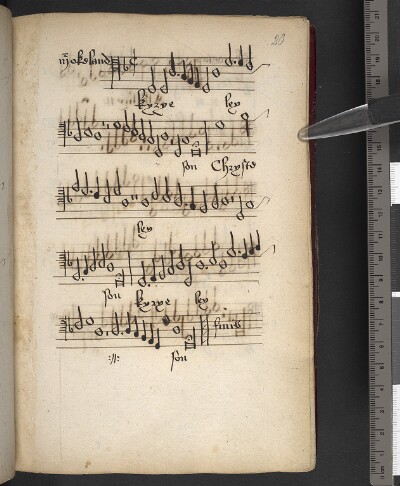 23
mr okeland
kyrye ley
son Chryste
ley
son kyrye ley
finis
:||: son